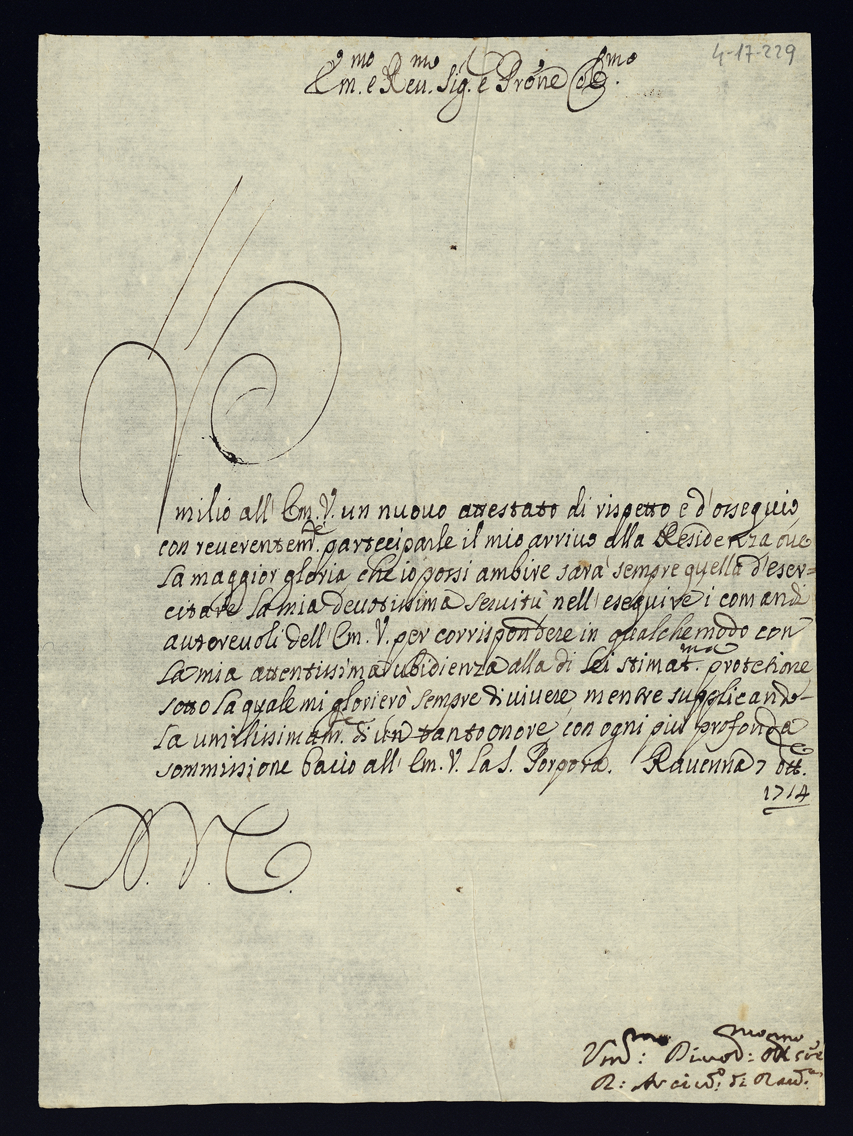 4-17-229
Em.mo e Reu.mo Sig.e Prōne Col.mo
Umilio all' Em. V. un nuovo attestato di rispetto e d'ossequio
con reverentem.te parteciparle il mio arrivo alla Residenza oue
la maggior gloria che io possi ambire sarà sempre quella d'eser=
citare la mia devotissima servitù nell'eseguire i comandi
autorevoli dell' Em. V. per corrispondere in qualche modo con
la mia attentissima ubidienza alla di lei stimat.ma protetione
sotto la quale mi glorierò sempre di vivere, mentre supplicando=
la umilissimam.te di un tanto onore con ogni più profonda
sommissione bacio all' Em. V. la S. Porpora. Ravenna 7 Ott.re
1714
D. V. E.
Um.mo Diuot.mo Obl.mo
R: Arciu.o di Rau.a